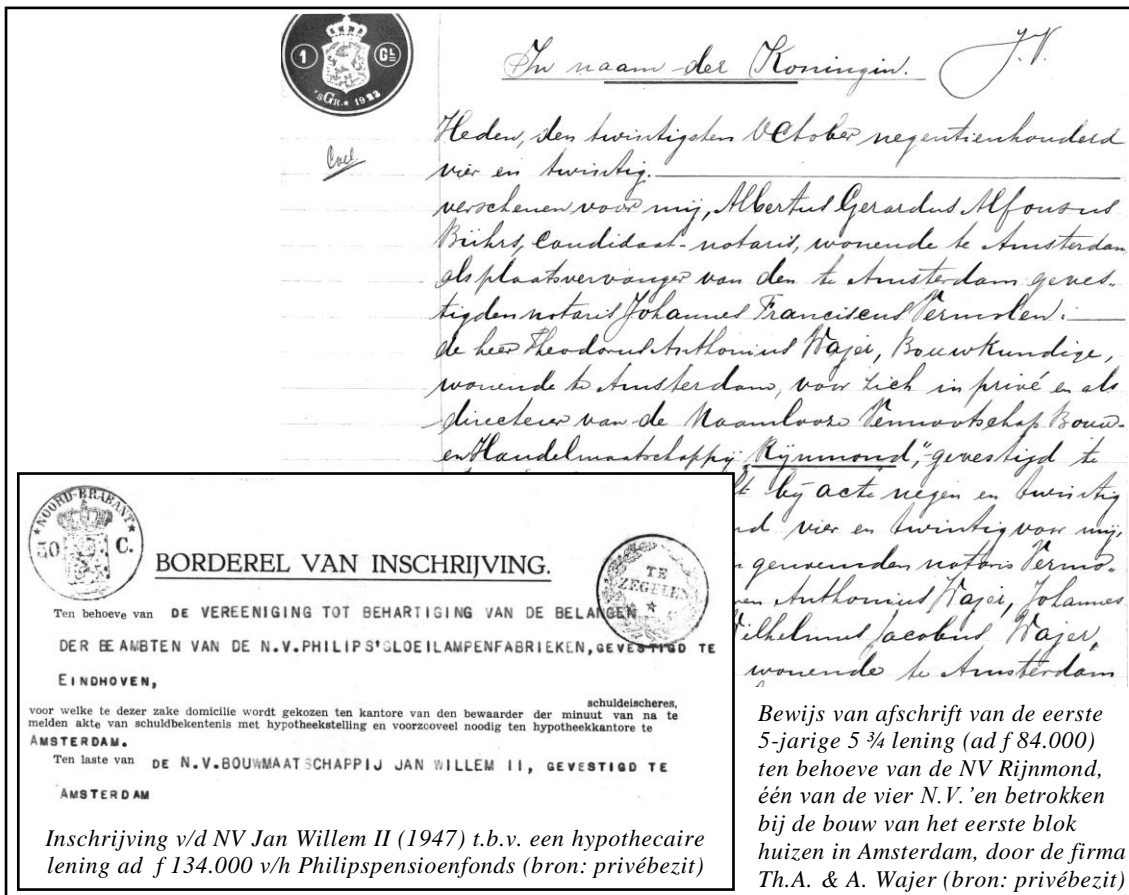 1 GL
'sGR. * 1923
In naam der Koningin.
Heden, den twintigsten October negentienhonderd
vier en twintig.
verschenen voor mij, Albertus Gerardus Alfonsus
Bührs, Candidaat-notaris, wonende te Amsterdam
als plaatsvervanger van den te Amsterdam geves-
tigden notaris Johannes Franciscus Vermolen:
de heer Theodorus Anthonius Wajer, Bouwkundige,
wonende te Amsterdam, voor zich in privé en als
directeur van de Naamlooze Vennootschap Bouw-
en Handelmaatschappij "Rijnmond", gevestigd te
bij acte negen en twintig
vier en twintig voor mij,
genoemden notaris Vermo-
Anthonius Wajer, Johannes
Wilhelmus Jacobus Wajer,
wonende te Amsterdam
NOORD-BRABANT
50 C.
BORDEREL VAN INSCHRIJVING.
TE
ZEGELEN
Ten behoeve van DE VEREENIGING TOT BEHARTIGING VAN DE BELANGEN
DER BEAMBTEN VAN DE N.V.PHILIPS'GLOEILAMPENFABRIEKEN, GEVESTIGD TE
EINDHOVEN,
schuldeischeres,
voor welke te dezer zake domicilie wordt gekozen ten kantore van den bewaarder der minuut van na te
melden akte van schuldbekentenis met hypotheekstelling en voorzooveel noodig ten hypotheekkantore te
AMSTERDAM.
Ten laste van DE N.V.BOUWMAATSCHAPPIJ JAN WILLEM II, GEVESTIGD TE
AMSTERDAM
Inschrijving v/d NV Jan Willem II (1947) t.b.v. een hypothecaire
lening ad f 134.000 v/h Philipspensioenfonds (bron: privébezit)
Bewijs van afschrift van de eerste
5-jarige 5 ¾ lening (ad f 84.000)
ten behoeve van de NV Rijnmond,
één van de vier N.V.'en betrokken
bij de bouw van het eerste blok
huizen in Amsterdam, door de firma
Th.A. & A. Wajer (bron: privébezit)